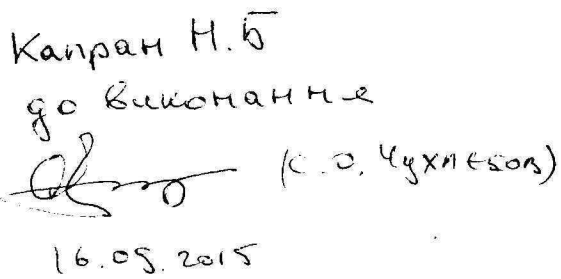 Капран Н.Б
до виконання
(С.О. Чухлєбов)
16.05.2015